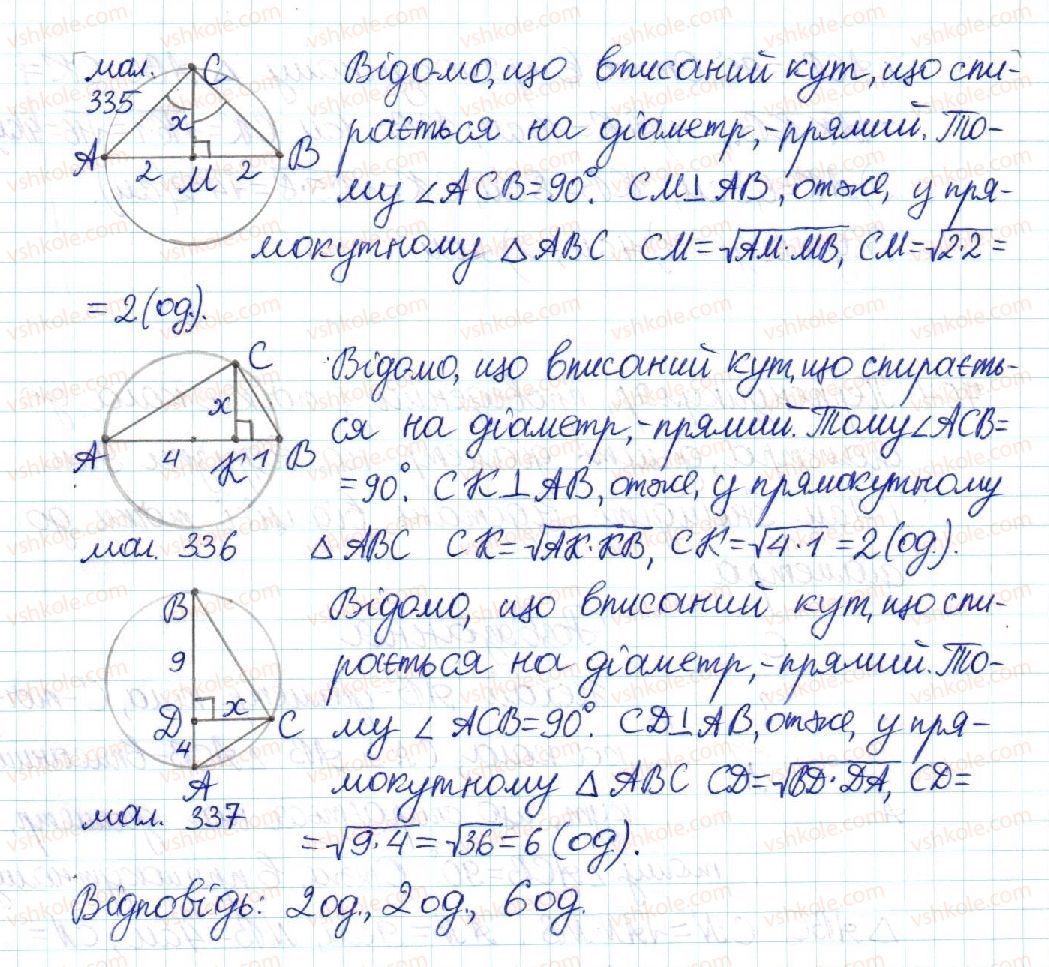 мал. 335
C
x
A 2 M 2 B
Відомо, що вписаний кут, що спи-
рається на діаметр,-прямий. То-
му ∠ACB=90°. CM⊥AB, отже, у пря-
мокутному △ABC CM=√AM·MB, CM=√2·2=
=2(од).
C
x
A 4 K 1 B
мал. 336
Відомо, що вписаний кут, що спираєть-
ся на діаметр,-прямий. Тому ∠ACB=
=90°. CK⊥AB, отже, у прямокутному
△ABC CK=√AK·KB, CK=√4·1=2(од).
B
9
D x C
4
A
мал. 337
Відомо, що вписаний кут, що спи-
рається на діаметр,-прямий. То-
му ∠ACB=90°. CD⊥AB, отже, у пря-
мокутному △ABC CD=√BD·DA, CD=
=√9·4=√36=6(од).
Відповідь: 2од., 2од., 6од.
vshkole.com